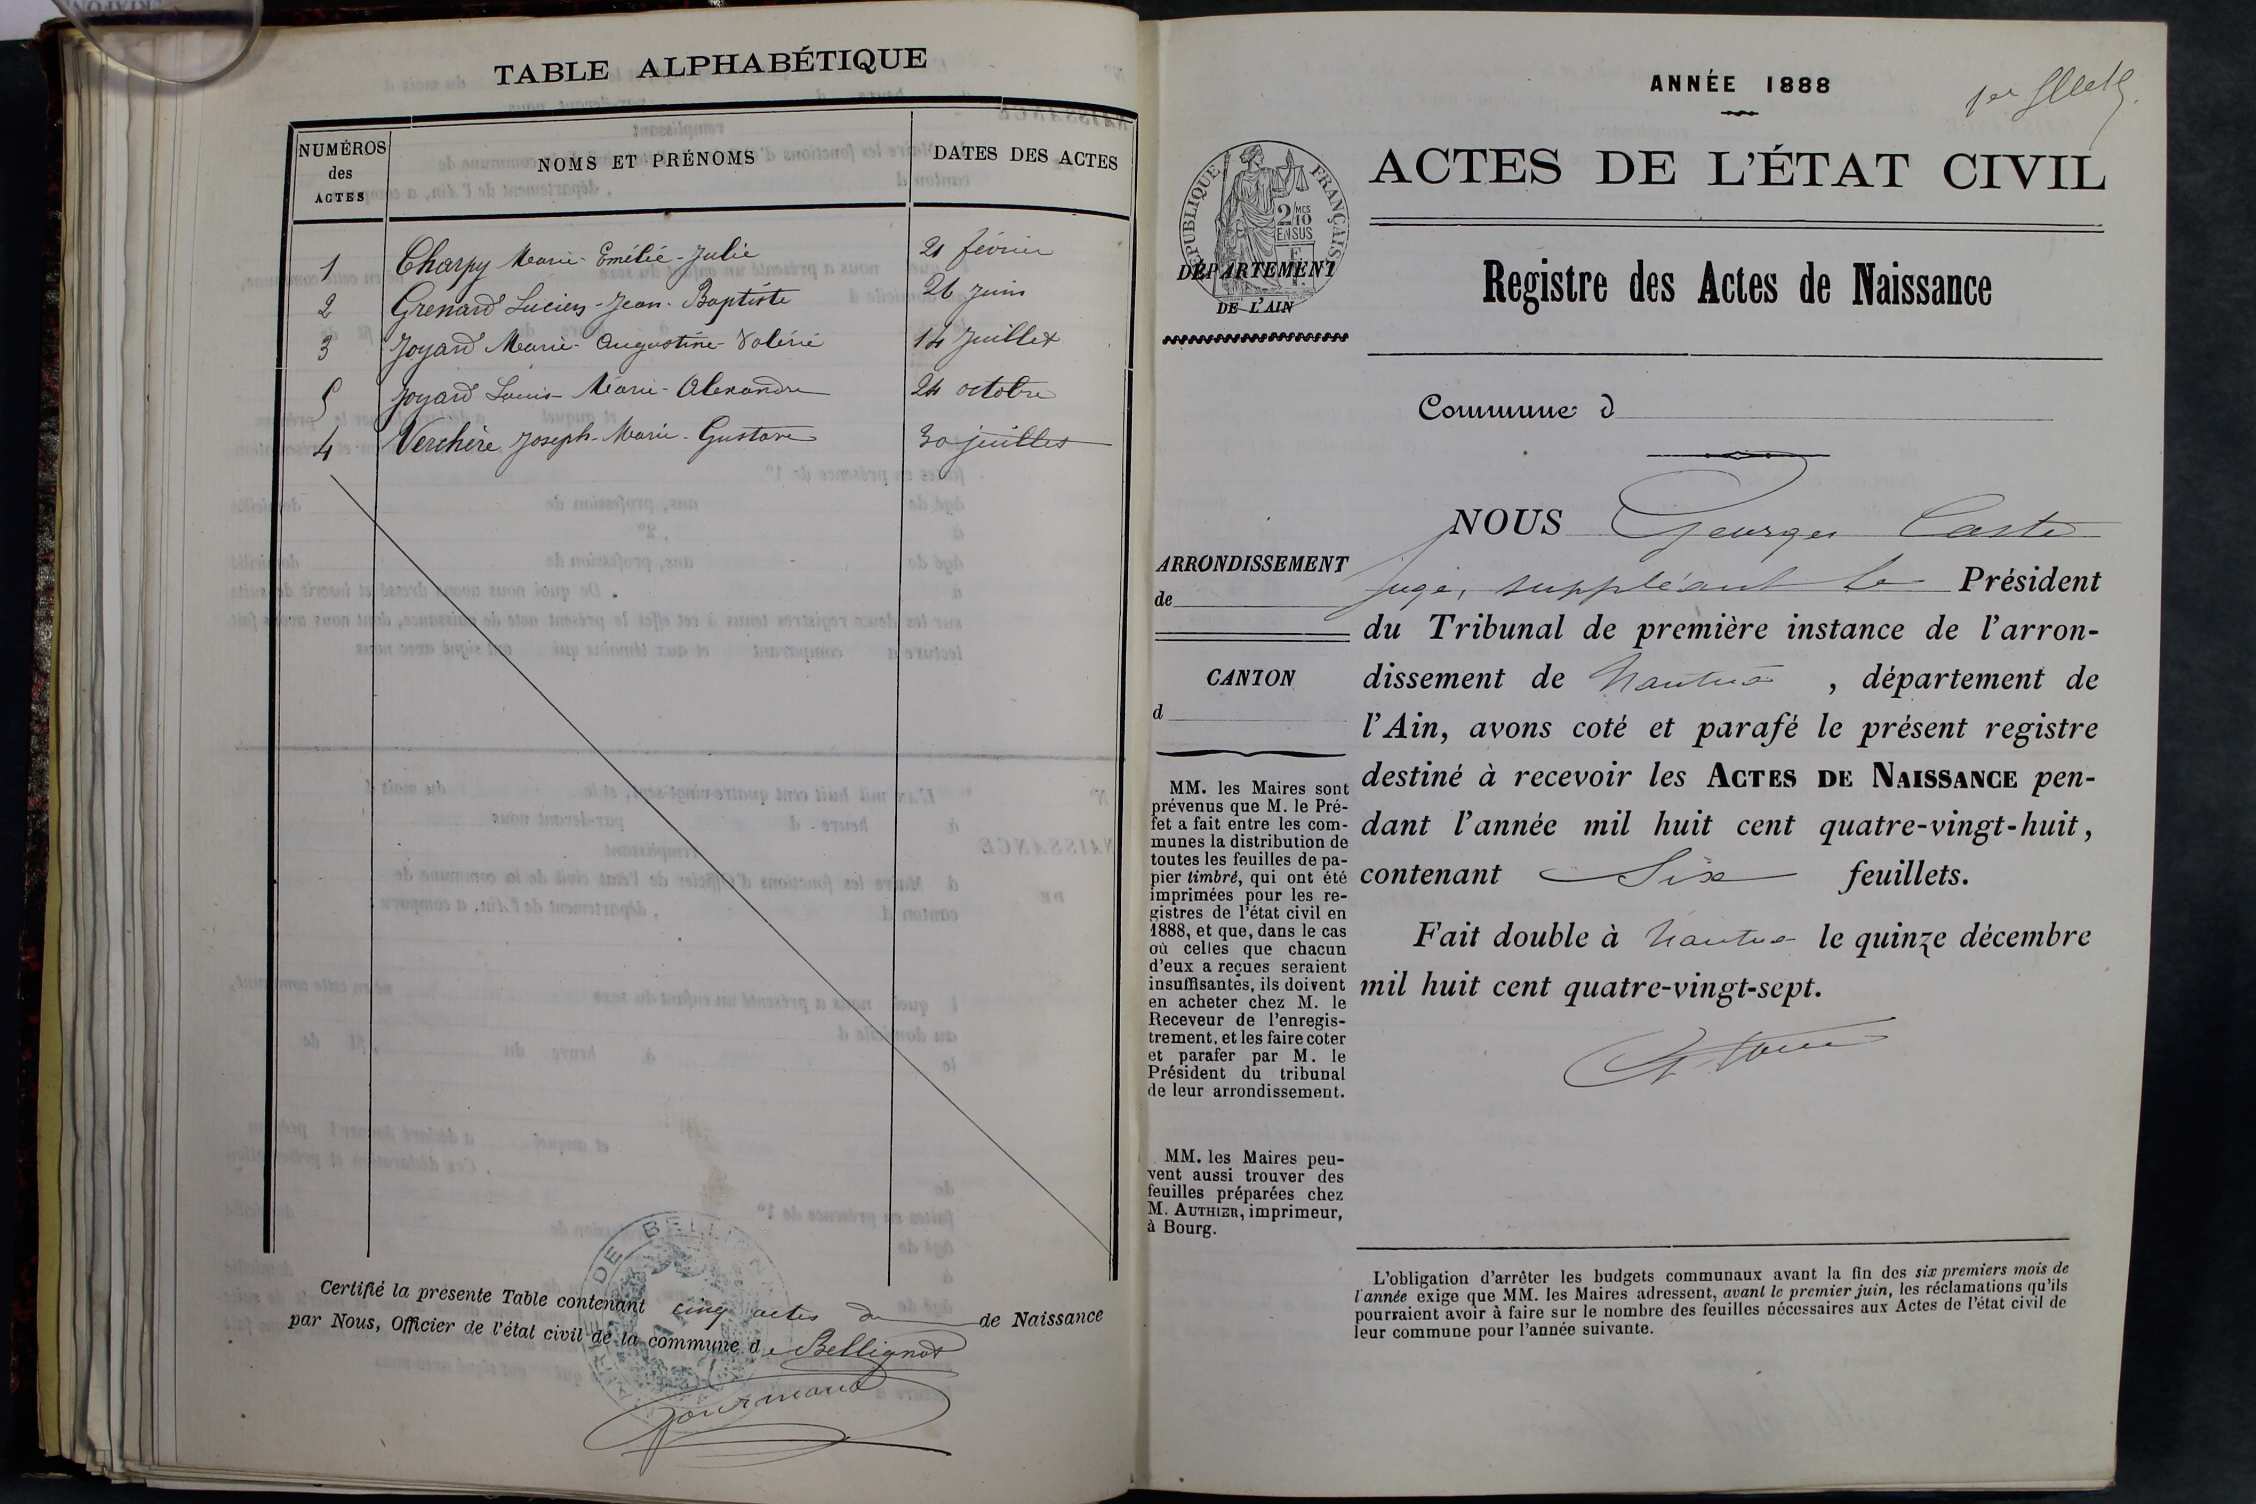 TABLE ALPHABÉTIQUE
NUMÉROS
des
ACTES
NOMS ET PRÉNOMS
DATES DES ACTES
1 Charpy Marie-Emélie-Julie 21 février
2 Grenard Lucien-Jean-Baptiste 26 juin
3 Joyard Marie-Augustine-Valérie 14 Juillet
5 Joyard Louis-Marie-Alexandre 24 octobre
4 Verchère Joseph-Marie-Gustave 30 juillet
Certifié la présente Table contenant cinq actes de Naissance
par Nous, Officier de l'état civil de la commune de Bellignat
Gourmand
ANNÉE 1888
1er
ACTES DE L'ÉTAT CIVIL
RÉPUBLIQUE FRANÇAISE
2/10
EN SUS
DÉPARTEMENT
DE L'AIN
Registre des Actes de Naissance
Commune d
ARRONDISSEMENT
de
CANTON
d
MM. les Maires sont
prévenus que M. le Pré-
fet a fait entre les com-
munes la distribution de
toutes les feuilles de pa-
pier timbré, qui ont été
imprimées pour les re-
gistres de l'état civil en
1888, et que, dans le cas
où celles que chacun
d'eux a reçues seraient
insuffisantes, ils doivent
en acheter chez M. le
Receveur de l'enregis-
trement, et les faire coter
et parafer par M. le
Président du tribunal
de leur arrondissement.
MM. les Maires peu-
vent aussi trouver des
feuilles préparées chez
M. AUTHIER, imprimeur,
à Bourg.
NOUS Georges
juge, suppléant le Président
du Tribunal de première instance de l'arron-
dissement de Nantua, département de
l'Ain, avons coté et parafé le présent registre
destiné à recevoir les ACTES DE NAISSANCE pen-
dant l'année mil huit cent quatre-vingt-huit,
contenant Six feuillets.
Fait double à Nantua le quinze décembre
mil huit cent quatre-vingt-sept.
L'obligation d'arrêter les budgets communaux avant la fin des six premiers mois de
l'année exige que MM. les Maires adressent, avant le premier juin, les réclamations qu'ils
pourraient avoir à faire sur le nombre des feuilles nécessaires aux Actes de l'état civil de
leur commune pour l'année suivante.